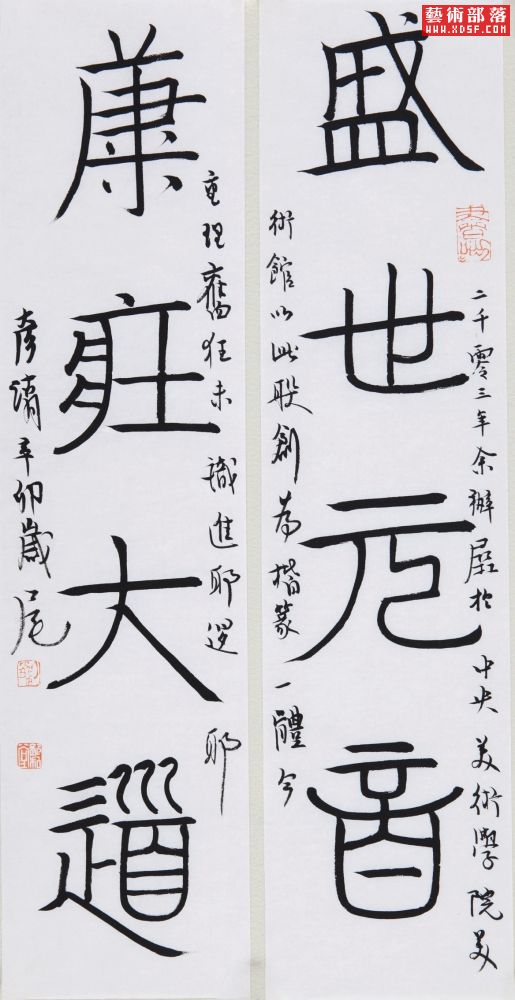 藝術部落
www.XDSF.com
盛世元音
二千零三年余辦展於中央美術學院美
術館以此聯創為楷篆一體今
康莊大道
重理舊狂未識進耶退耶
彥湖辛卯歲尾